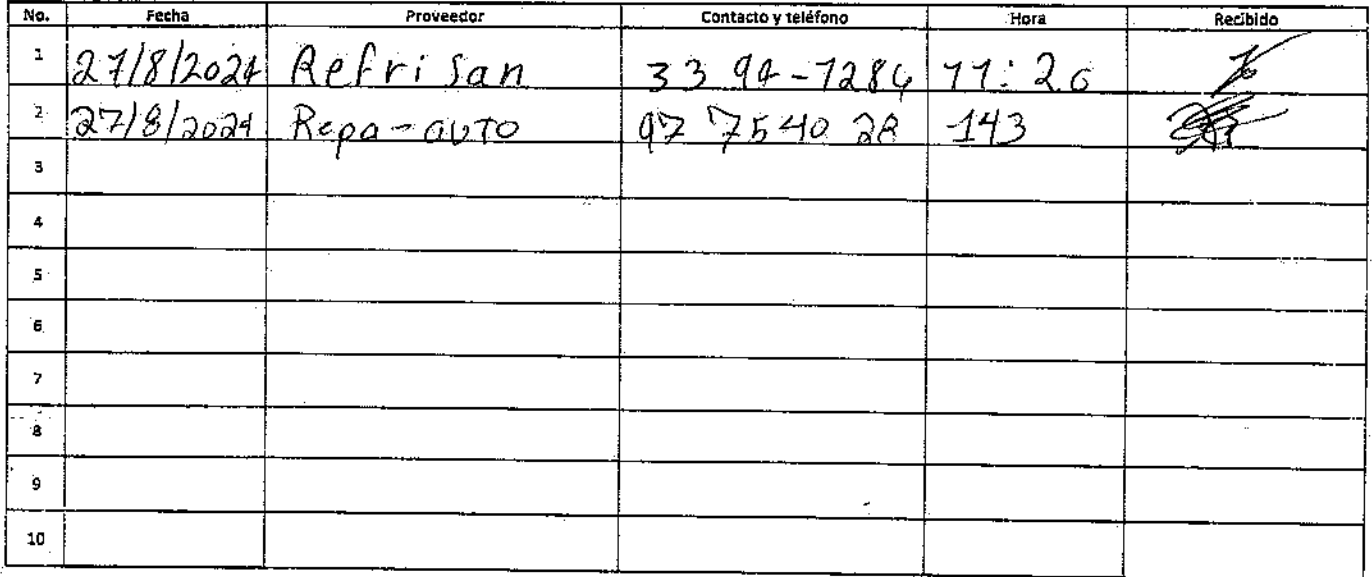 No. Fecha Proveedor Contacto y teléfono Hora Recibido
1 27/8/2024 Refrisan 33 94-7284 11:20
2 27/8/2024 Repa-auto 97 75 40 28 143
3
4
5
6
7
8
9
10